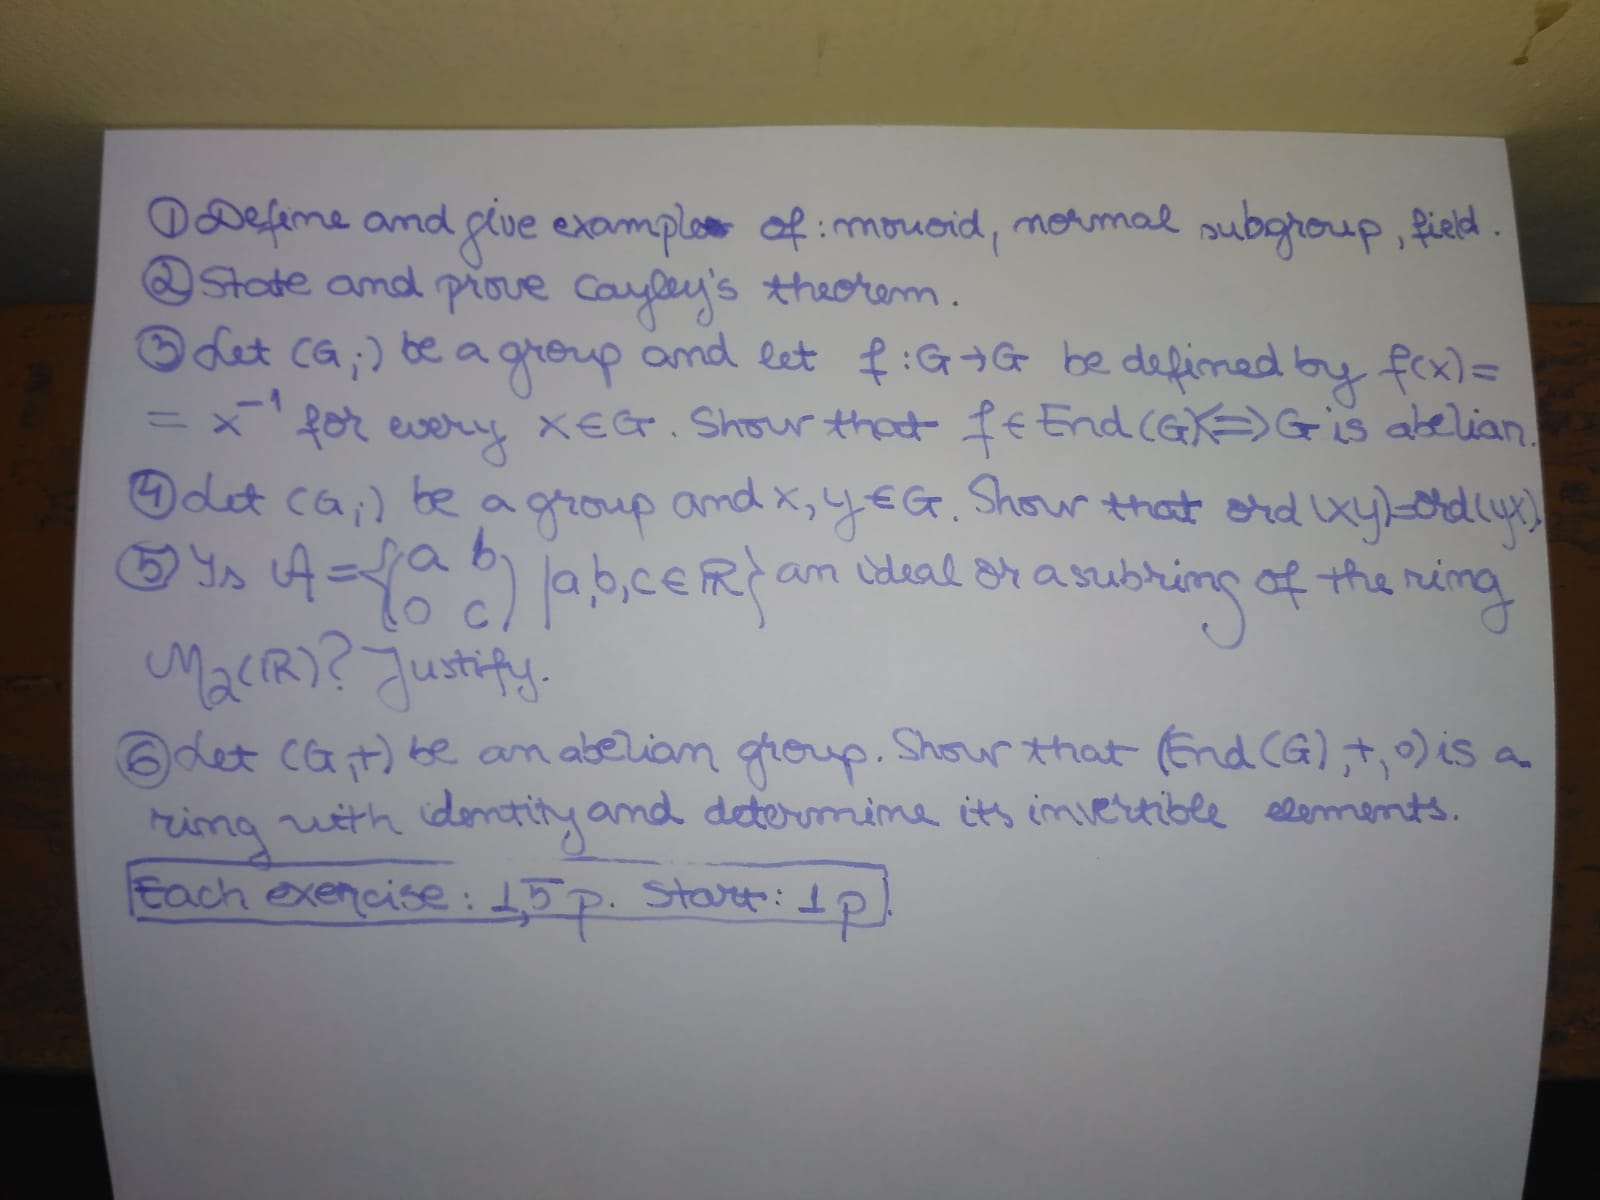 ① Define and give examples of: monoid, normal subgroup, field.
② State and prove Cayley's theorem.
③ Let (G,·) be a group and let f:G→G be defined by f(x)=
= x⁻¹ for every x∈G. Show that f∈End(G)⇔G is abelian.
④ Let (G,·) be a group and x,y∈G. Show that ord(xy)=ord(yx).
⑤ Is A={(a b
0 c) |a,b,c∈ℝ} an ideal or a subring of the ring
M₂(ℝ)? Justify.
⑥ Let (G,+) be an abelian group. Show that (End(G),+,∘) is a
ring with identity and determine its invertible elements.
Each exercise: 1,5 p. Start: 1 p.